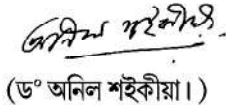 অনিল শইকীয়া
(ড° অনিল শইকীয়া।)